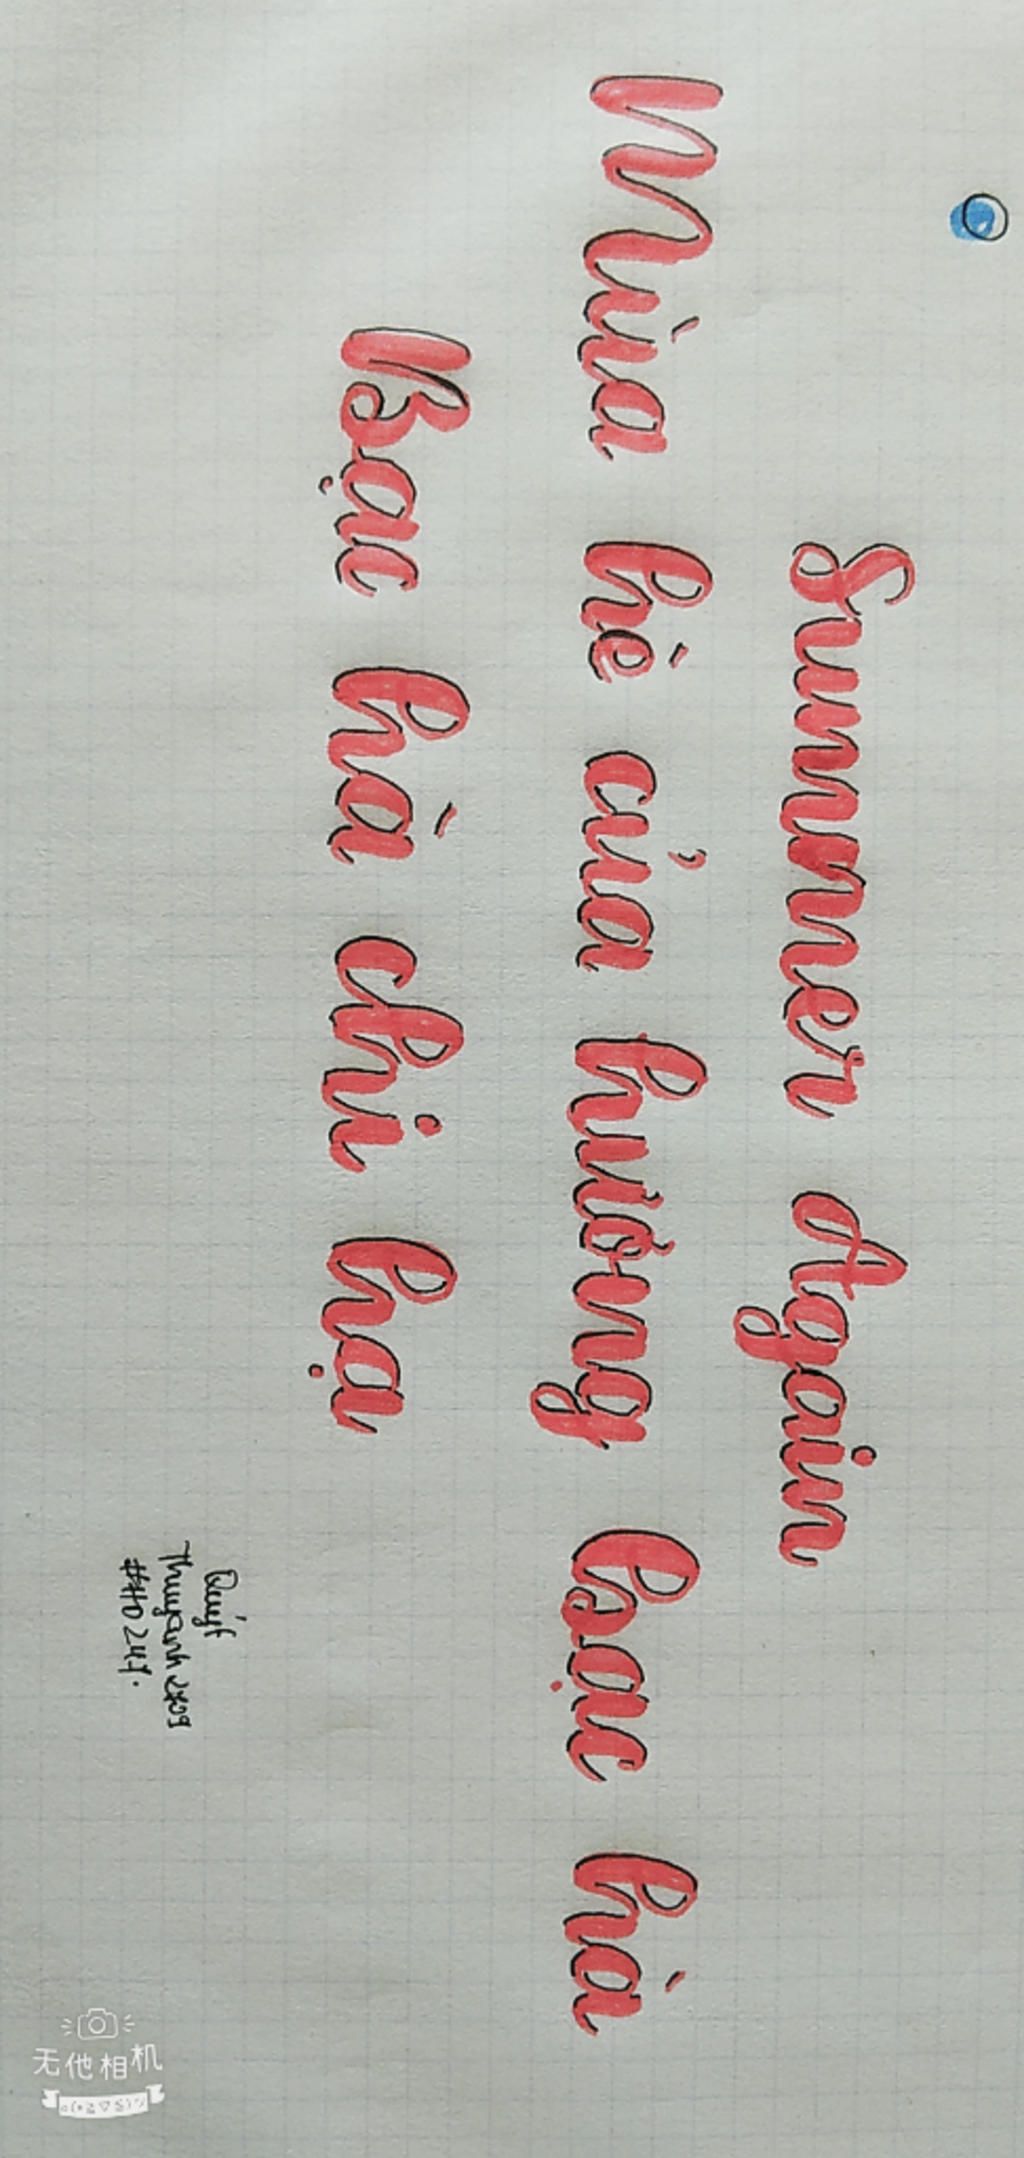 Summer Again
Mùa hè của hương bạc hà
Bạc hà chi hạ
Quýt
Thuyanh2809
无他相机